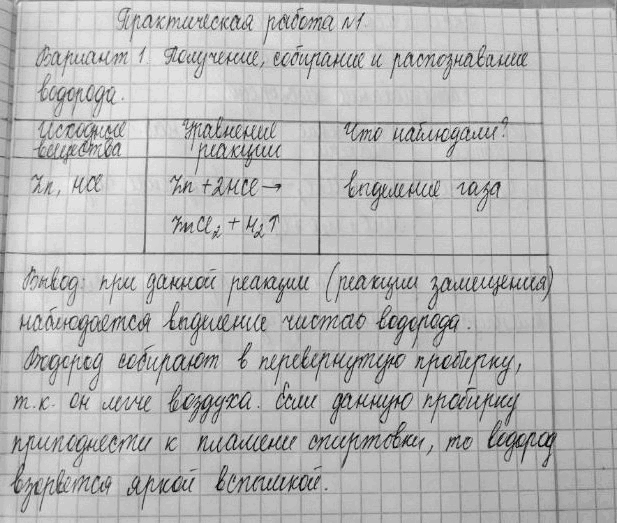 Практическая работа №1
Вариант 1. Получение, собирание и распознавание
водорода.
Исходные вещества
Уравнение реакции
Что наблюдали?
Zn, HCl
Zn + 2HCl →
ZnCl₂ + H₂↑
выделение газа
Вывод: при данной реакции (реакции замещения)
наблюдается выделение чистого водорода.
Водород собирают в перевернутую пробирку,
т.к. он легче воздуха. Если данную пробирку
приподнести к пламени спиртовки, то водород
взорвется яркой вспышкой.